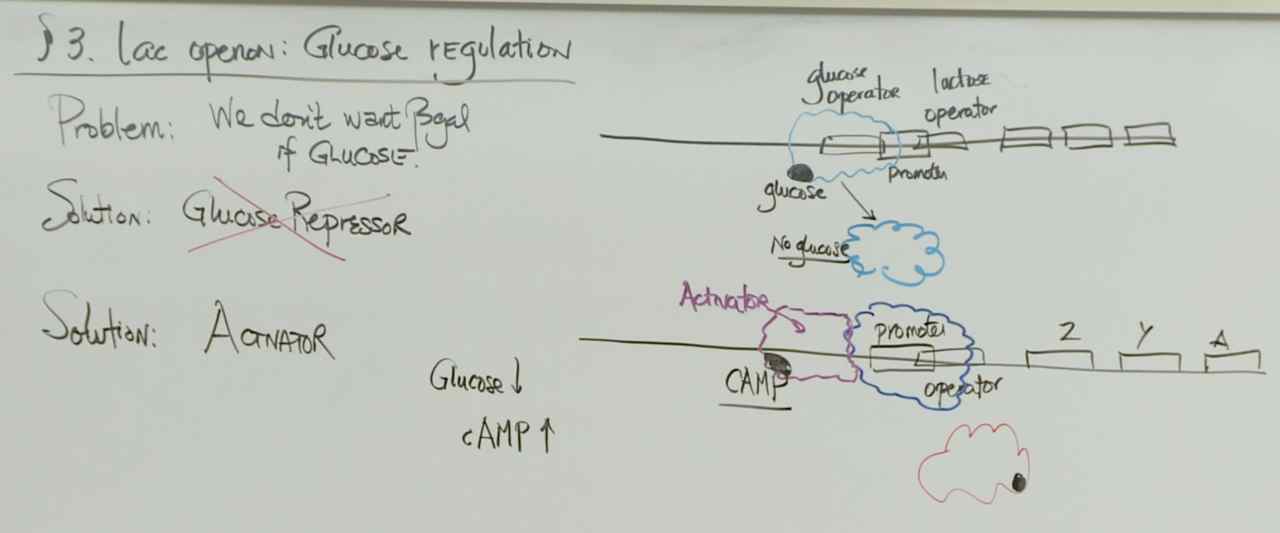 § 3. lac operon: Glucose regulation
Problem: We don't want βgal
if Glucose.
Solution: Glucose Repressor
Solution: Activator
Glucose ↓
cAMP ↑
glucose
operator
lactose
operator
promoter
glucose
No glucose
Activator
promoter
Z Y A
CAMP
operator